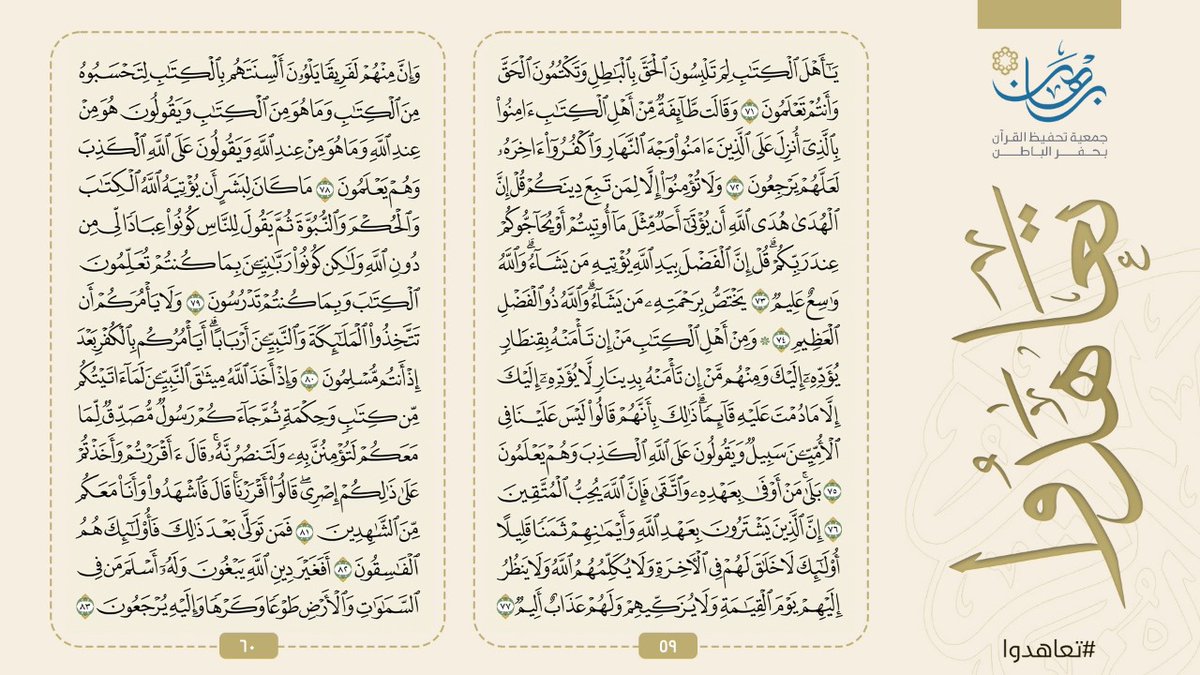 برهان
جمعية تحفيظ القرآن
بحفر الباطن
تعاهدوا
#تعاهدوا
يَٰٓأَهْلَ ٱلْكِتَٰبِ لِمَ تَلْبِسُونَ ٱلْحَقَّ بِٱلْبَٰطِلِ وَتَكْتُمُونَ ٱلْحَقَّ
وَأَنتُمْ تَعْلَمُونَ ٧١ وَقَالَت طَّآئِفَةٌ مِّنْ أَهْلِ ٱلْكِتَٰبِ ءَامِنُوا۟
بِٱلَّذِىٓ أُنزِلَ عَلَى ٱلَّذِينَ ءَامَنُوا۟ وَجْهَ ٱلنَّهَارِ وَٱكْفُرُوٓا۟ ءَاخِرَهُۥ
لَعَلَّهُمْ يَرْجِعُونَ ٧٢ وَلَا تُؤْمِنُوٓا۟ إِلَّا لِمَن تَبِعَ دِينَكُمْ قُلْ إِنَّ
ٱلْهُدَىٰ هُدَى ٱللَّهِ أَن يُؤْتَىٰٓ أَحَدٌ مِّثْلَ مَآ أُوتِيتُمْ أَوْ يُحَآجُّوكُمْ
عِندَ رَبِّكُمْ ۗ قُلْ إِنَّ ٱلْفَضْلَ بِيَدِ ٱللَّهِ يُؤْتِيهِ مَن يَشَآءُ ۗ وَٱللَّهُ
وَٰسِعٌ عَلِيمٌ ٧٣ يَخْتَصُّ بِرَحْمَتِهِۦ مَن يَشَآءُ ۗ وَٱللَّهُ ذُو ٱلْفَضْلِ
ٱلْعَظِيمِ ٧٤ ۞ وَمِنْ أَهْلِ ٱلْكِتَٰبِ مَنْ إِن تَأْمَنْهُ بِقِنطَارٍ
يُؤَدِّهِۦٓ إِلَيْكَ وَمِنْهُم مَّنْ إِن تَأْمَنْهُ بِدِينَارٍ لَّا يُؤَدِّهِۦٓ إِلَيْكَ
إِلَّا مَا دُمْتَ عَلَيْهِ قَآئِمًا ۗ ذَٰلِكَ بِأَنَّهُمْ قَالُوا۟ لَيْسَ عَلَيْنَا فِى
ٱلْأُمِّيِّۦنَ سَبِيلٌ وَيَقُولُونَ عَلَى ٱللَّهِ ٱلْكَذِبَ وَهُمْ يَعْلَمُونَ
٧٥ بَلَىٰ ۚ مَنْ أَوْفَىٰ بِعَهْدِهِۦ وَٱتَّقَىٰ فَإِنَّ ٱللَّهَ يُحِبُّ ٱلْمُتَّقِينَ
٧٦ إِنَّ ٱلَّذِينَ يَشْتَرُونَ بِعَهْدِ ٱللَّهِ وَأَيْمَٰنِهِمْ ثَمَنًا قَلِيلًا
أُو۟لَٰٓئِكَ لَا خَلَٰقَ لَهُمْ فِى ٱلْءَاخِرَةِ وَلَا يُكَلِّمُهُمُ ٱللَّهُ وَلَا يَنظُرُ
إِلَيْهِمْ يَوْمَ ٱلْقِيَٰمَةِ وَلَا يُزَكِّيهِمْ وَلَهُمْ عَذَابٌ أَلِيمٌ ٧٧
٥٩
وَإِنَّ مِنْهُمْ لَفَرِيقًا يَلْوُۥنَ أَلْسِنَتَهُم بِٱلْكِتَٰبِ لِتَحْسَبُوهُ
مِنَ ٱلْكِتَٰبِ وَمَا هُوَ مِنَ ٱلْكِتَٰبِ وَيَقُولُونَ هُوَ مِنْ
عِندِ ٱللَّهِ وَمَا هُوَ مِنْ عِندِ ٱللَّهِ وَيَقُولُونَ عَلَى ٱللَّهِ ٱلْكَذِبَ
وَهُمْ يَعْلَمُونَ ٧٨ مَا كَانَ لِبَشَرٍ أَن يُؤْتِيَهُ ٱللَّهُ ٱلْكِتَٰبَ
وَٱلْحُكْمَ وَٱلنُّبُوَّةَ ثُمَّ يَقُولَ لِلنَّاسِ كُونُوا۟ عِبَادًا لِّى مِن
دُونِ ٱللَّهِ وَلَٰكِن كُونُوا۟ رَبَّٰنِيِّۦنَ بِمَا كُنتُمْ تُعَلِّمُونَ
ٱلْكِتَٰبَ وَبِمَا كُنتُمْ تَدْرُسُونَ ٧٩ وَلَا يَأْمُرَكُمْ أَن
تَتَّخِذُوا۟ ٱلْمَلَٰٓئِكَةَ وَٱلنَّبِيِّۦنَ أَرْبَابًا ۗ أَيَأْمُرُكُم بِٱلْكُفْرِ بَعْدَ
إِذْ أَنتُم مُّسْلِمُونَ ٨٠ وَإِذْ أَخَذَ ٱللَّهُ مِيثَٰقَ ٱلنَّبِيِّۦنَ لَمَآ ءَاتَيْتُكُم
مِّن كِتَٰبٍ وَحِكْمَةٍ ثُمَّ جَآءَكُمْ رَسُولٌ مُّصَدِّقٌ لِّمَا
مَعَكُمْ لَتُؤْمِنُنَّ بِهِۦ وَلَتَنصُرُنَّهُۥ ۚ قَالَ ءَأَقْرَرْتُمْ وَأَخَذْتُمْ
عَلَىٰ ذَٰلِكُمْ إِصْرِى ۖ قَالُوٓا۟ أَقْرَرْنَا ۚ قَالَ فَٱشْهَدُوا۟ وَأَنَا۠ مَعَكُم
مِّنَ ٱلشَّٰهِدِينَ ٨١ فَمَن تَوَلَّىٰ بَعْدَ ذَٰلِكَ فَأُو۟لَٰٓئِكَ هُمُ
ٱلْفَٰسِقُونَ ٨٢ أَفَغَيْرَ دِينِ ٱللَّهِ يَبْغُونَ وَلَهُۥٓ أَسْلَمَ مَن فِى
ٱلسَّمَٰوَٰتِ وَٱلْأَرْضِ طَوْعًا وَكَرْهًا وَإِلَيْهِ يُرْجَعُونَ ٨٣
٦٠